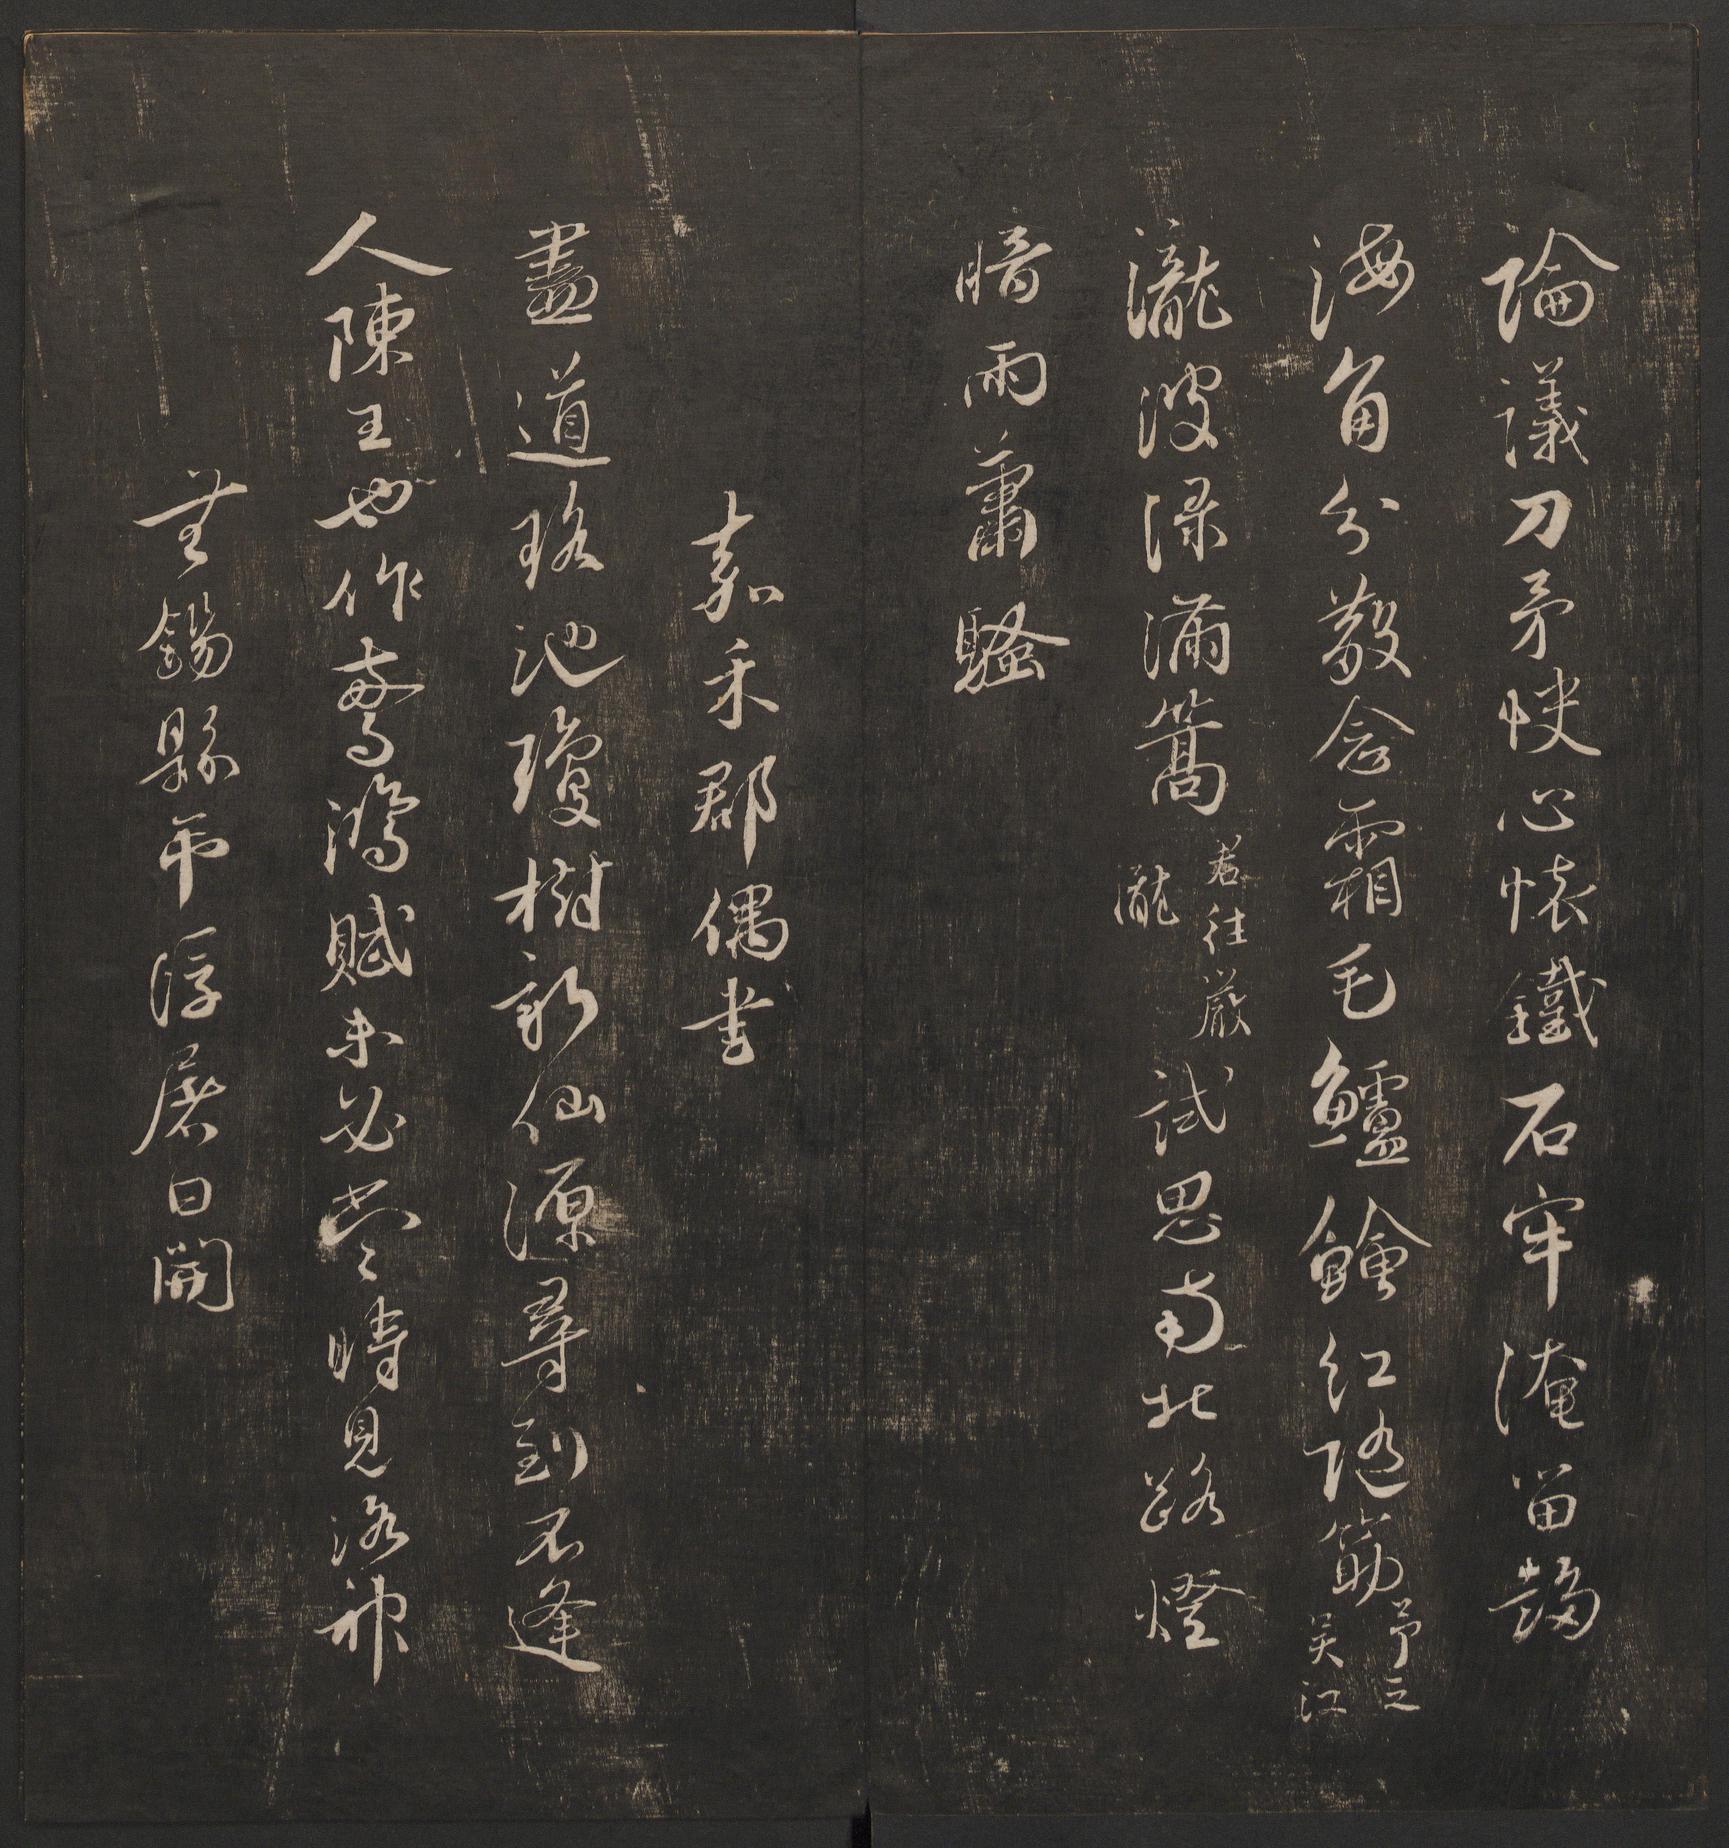 論議刀矛快心懷鐵石牢淹留趨
海角分散念霜毛鱸鱠紅隨筋予之
吳江
瀧波淥滿篙君往嚴
瀧試思南北路燈
暗雨蕭騷
嘉禾郡偶書
盡道瑤池瓊樹新仙源尋到不逢
人陳王也作驚鴻賦未必當時見洛神
無錫縣吊浮屠日開